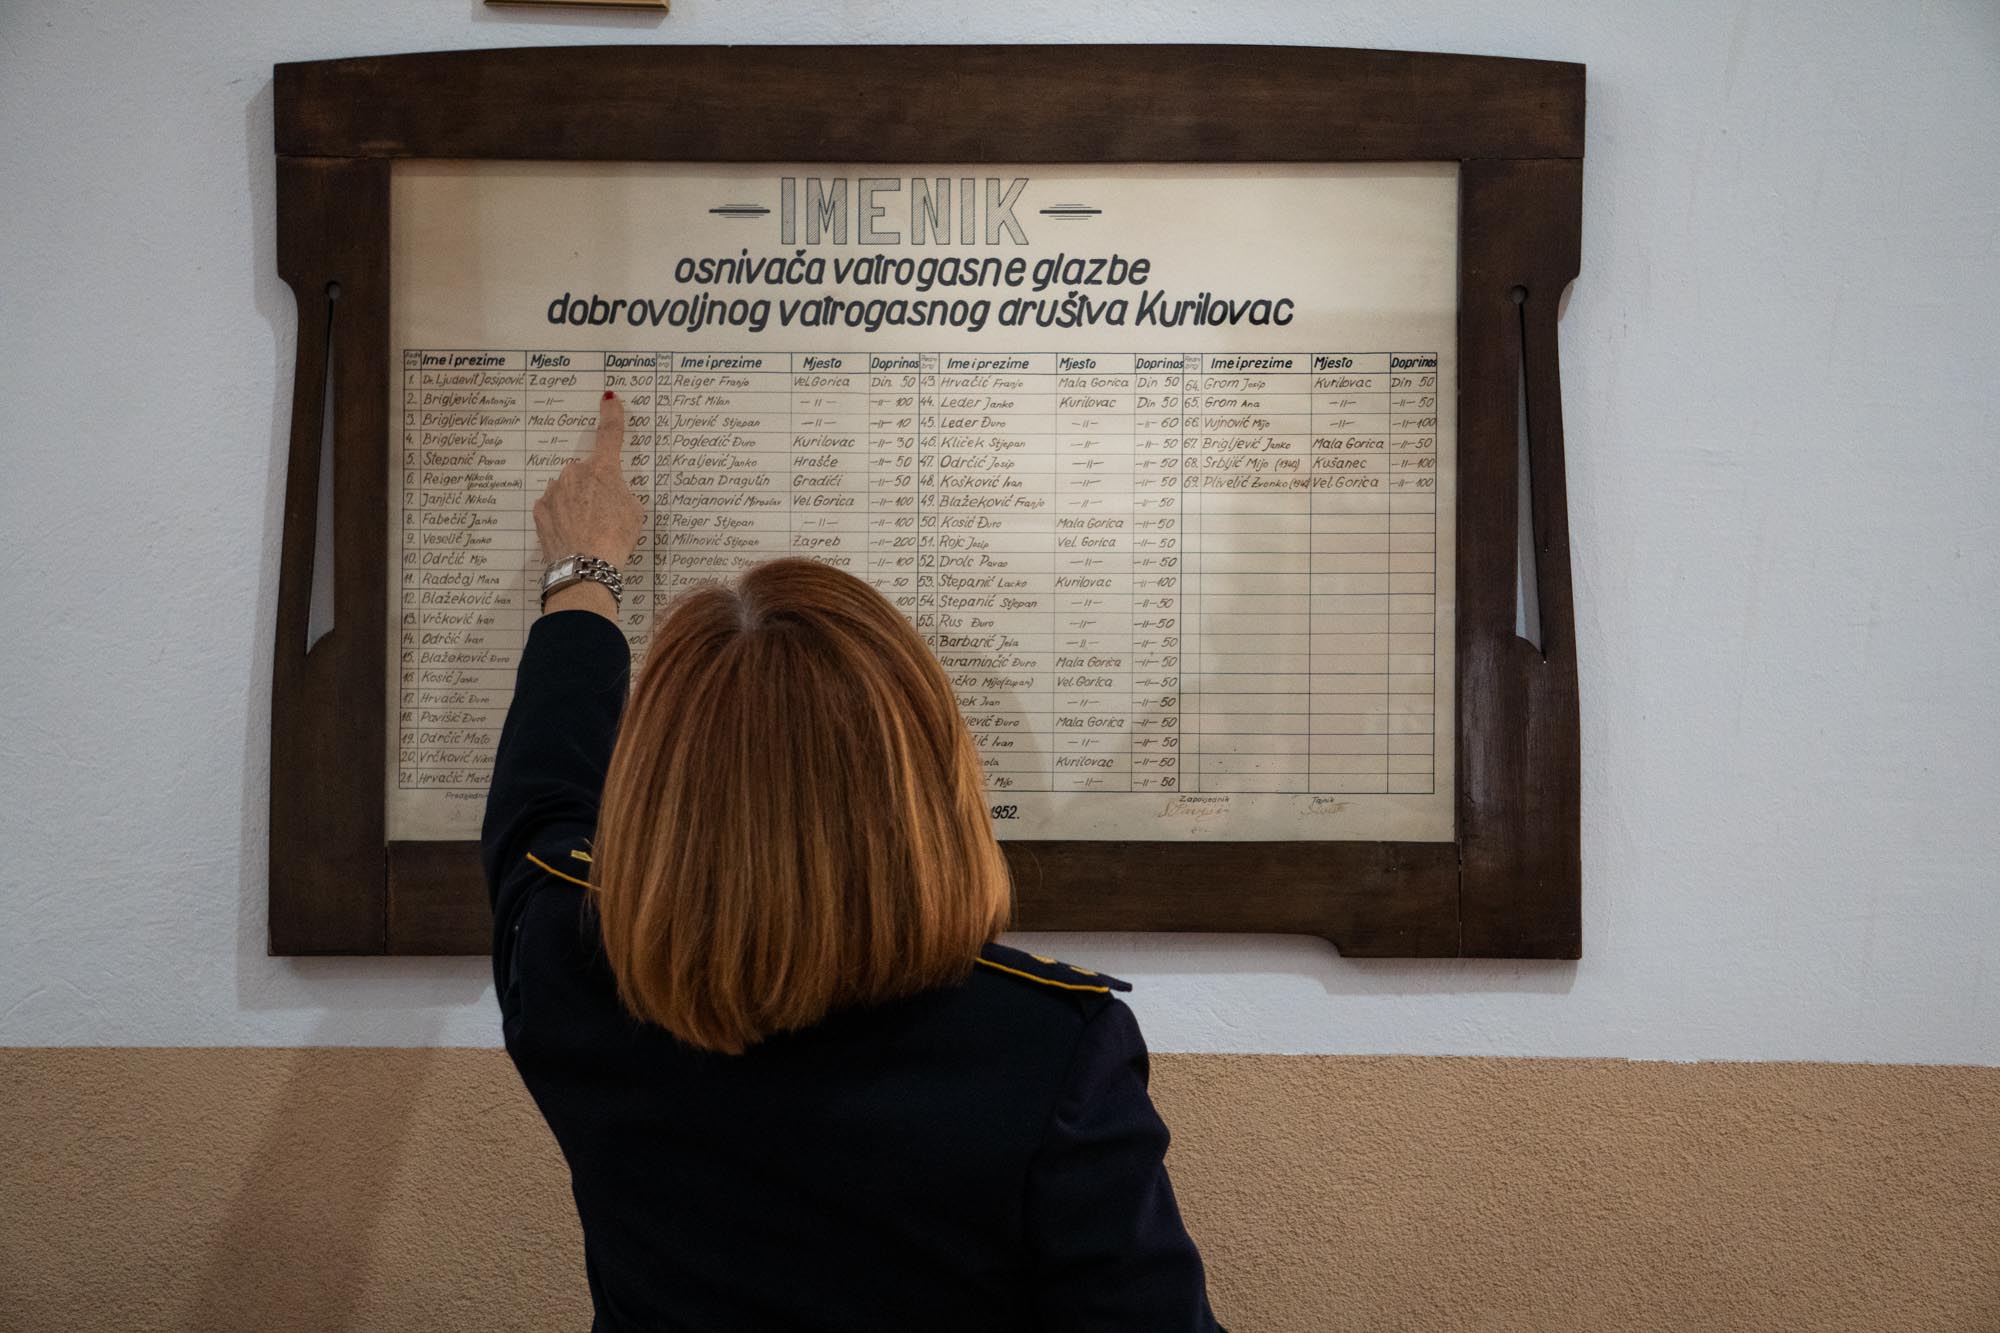 IMENIK
osnivača vatrogasne glazbe
dobrovoljnog vatrogasnog društva Kurilovac
Ime i prezime Mjesto Doprinos Ime i prezime Mjesto Doprinos Ime i prezime Mjesto Doprinos Ime i prezime Mjesto Doprinos
1. Dr. Ljudevit Josipović Zagreb Din. 300 22. Reiger Franjo Vel. Gorica Din. 50 43. Hrvačić Franjo Mala Gorica Din 50 64. Grom Josip Kurilovac Din 50
2. Brigljević Antonija —〃— 400 23. First Milan —〃— —〃— 100 44. Leder Janko Kurilovac Din 50 65. Grom Ana —〃— —〃— 50
3. Brigljević Vladimir Mala Gorica 500 24. Jurjević Stjepan —〃— —〃— 10 45. Leder Đuro —〃— —〃— 60 66. Vujnović Mijo —〃— —〃— 100
4. Brigljević Josip —〃— 200 25. Pogledić Đuro Kurilovac —〃— 30 46. Kliček Stjepan —〃— —〃— 50 67. Brigljević Janko Mala Gorica —〃— 50
5. Stepanić Pavao Kurilovac 150 26. Kraljević Janko Hrašće —〃— 50 47. Odrčić Josip —〃— —〃— 50 68. Srbljić Mijo (1940) Kušanec —〃— 100
6. Reiger Nikola (predsjednik) 100 27. Šaban Dragutin Gradići —〃— 50 48. Košković Ivan —〃— —〃— 50 69. Plivelić Zvonko Vel. Gorica —〃— 100
7. Janjčić Nikola 28. Marjanović Miroslav Vel. Gorica —〃— 100 49. Blažeković Franjo —〃— —〃— 50
8. Fabečić Janko 29. Reiger Stjepan —〃— —〃— 100 50. Kosić Đuro Mala Gorica —〃— 50
9. Veselić Janko 30. Milinović Stjepan Zagreb —〃— 200 51. Rojc Josip Vel. Gorica —〃— 50
10. Odrčić Mijo 50 31. Pogorelec Gorica —〃— 100 52. Drolc Pavao —〃— —〃— 50
11. Radočaj Mara 100 32. —〃— 50 53. Stepanić Lacko Kurilovac —〃— 100
12. Blažeković Ivan 10 33. 100 54. Stepanić Stjepan —〃— —〃— 50
13. Vrčković Ivan 50 55. Rus Đuro —〃— —〃— 50
14. Odrčić Ivan 100 Barbarić Jela —〃— —〃— 50
15. Blažeković Đuro Haraminčić Đuro Mala Gorica —〃— 50
16. Kosić Janko Mijo (župan) Vel. Gorica —〃— 50
17. Hrvačić Đuro Ivan —〃— —〃— 50
18. Pavišić Đuro Đuro Mala Gorica —〃— 50
19. Odrčić Mato Ivan —〃— —〃— 50
20. Vrčković Kurilovac —〃— 50
21. Hrvačić Mijo —〃— —〃— 50
Predsjednik Zapovjednik Tajnik
1952.